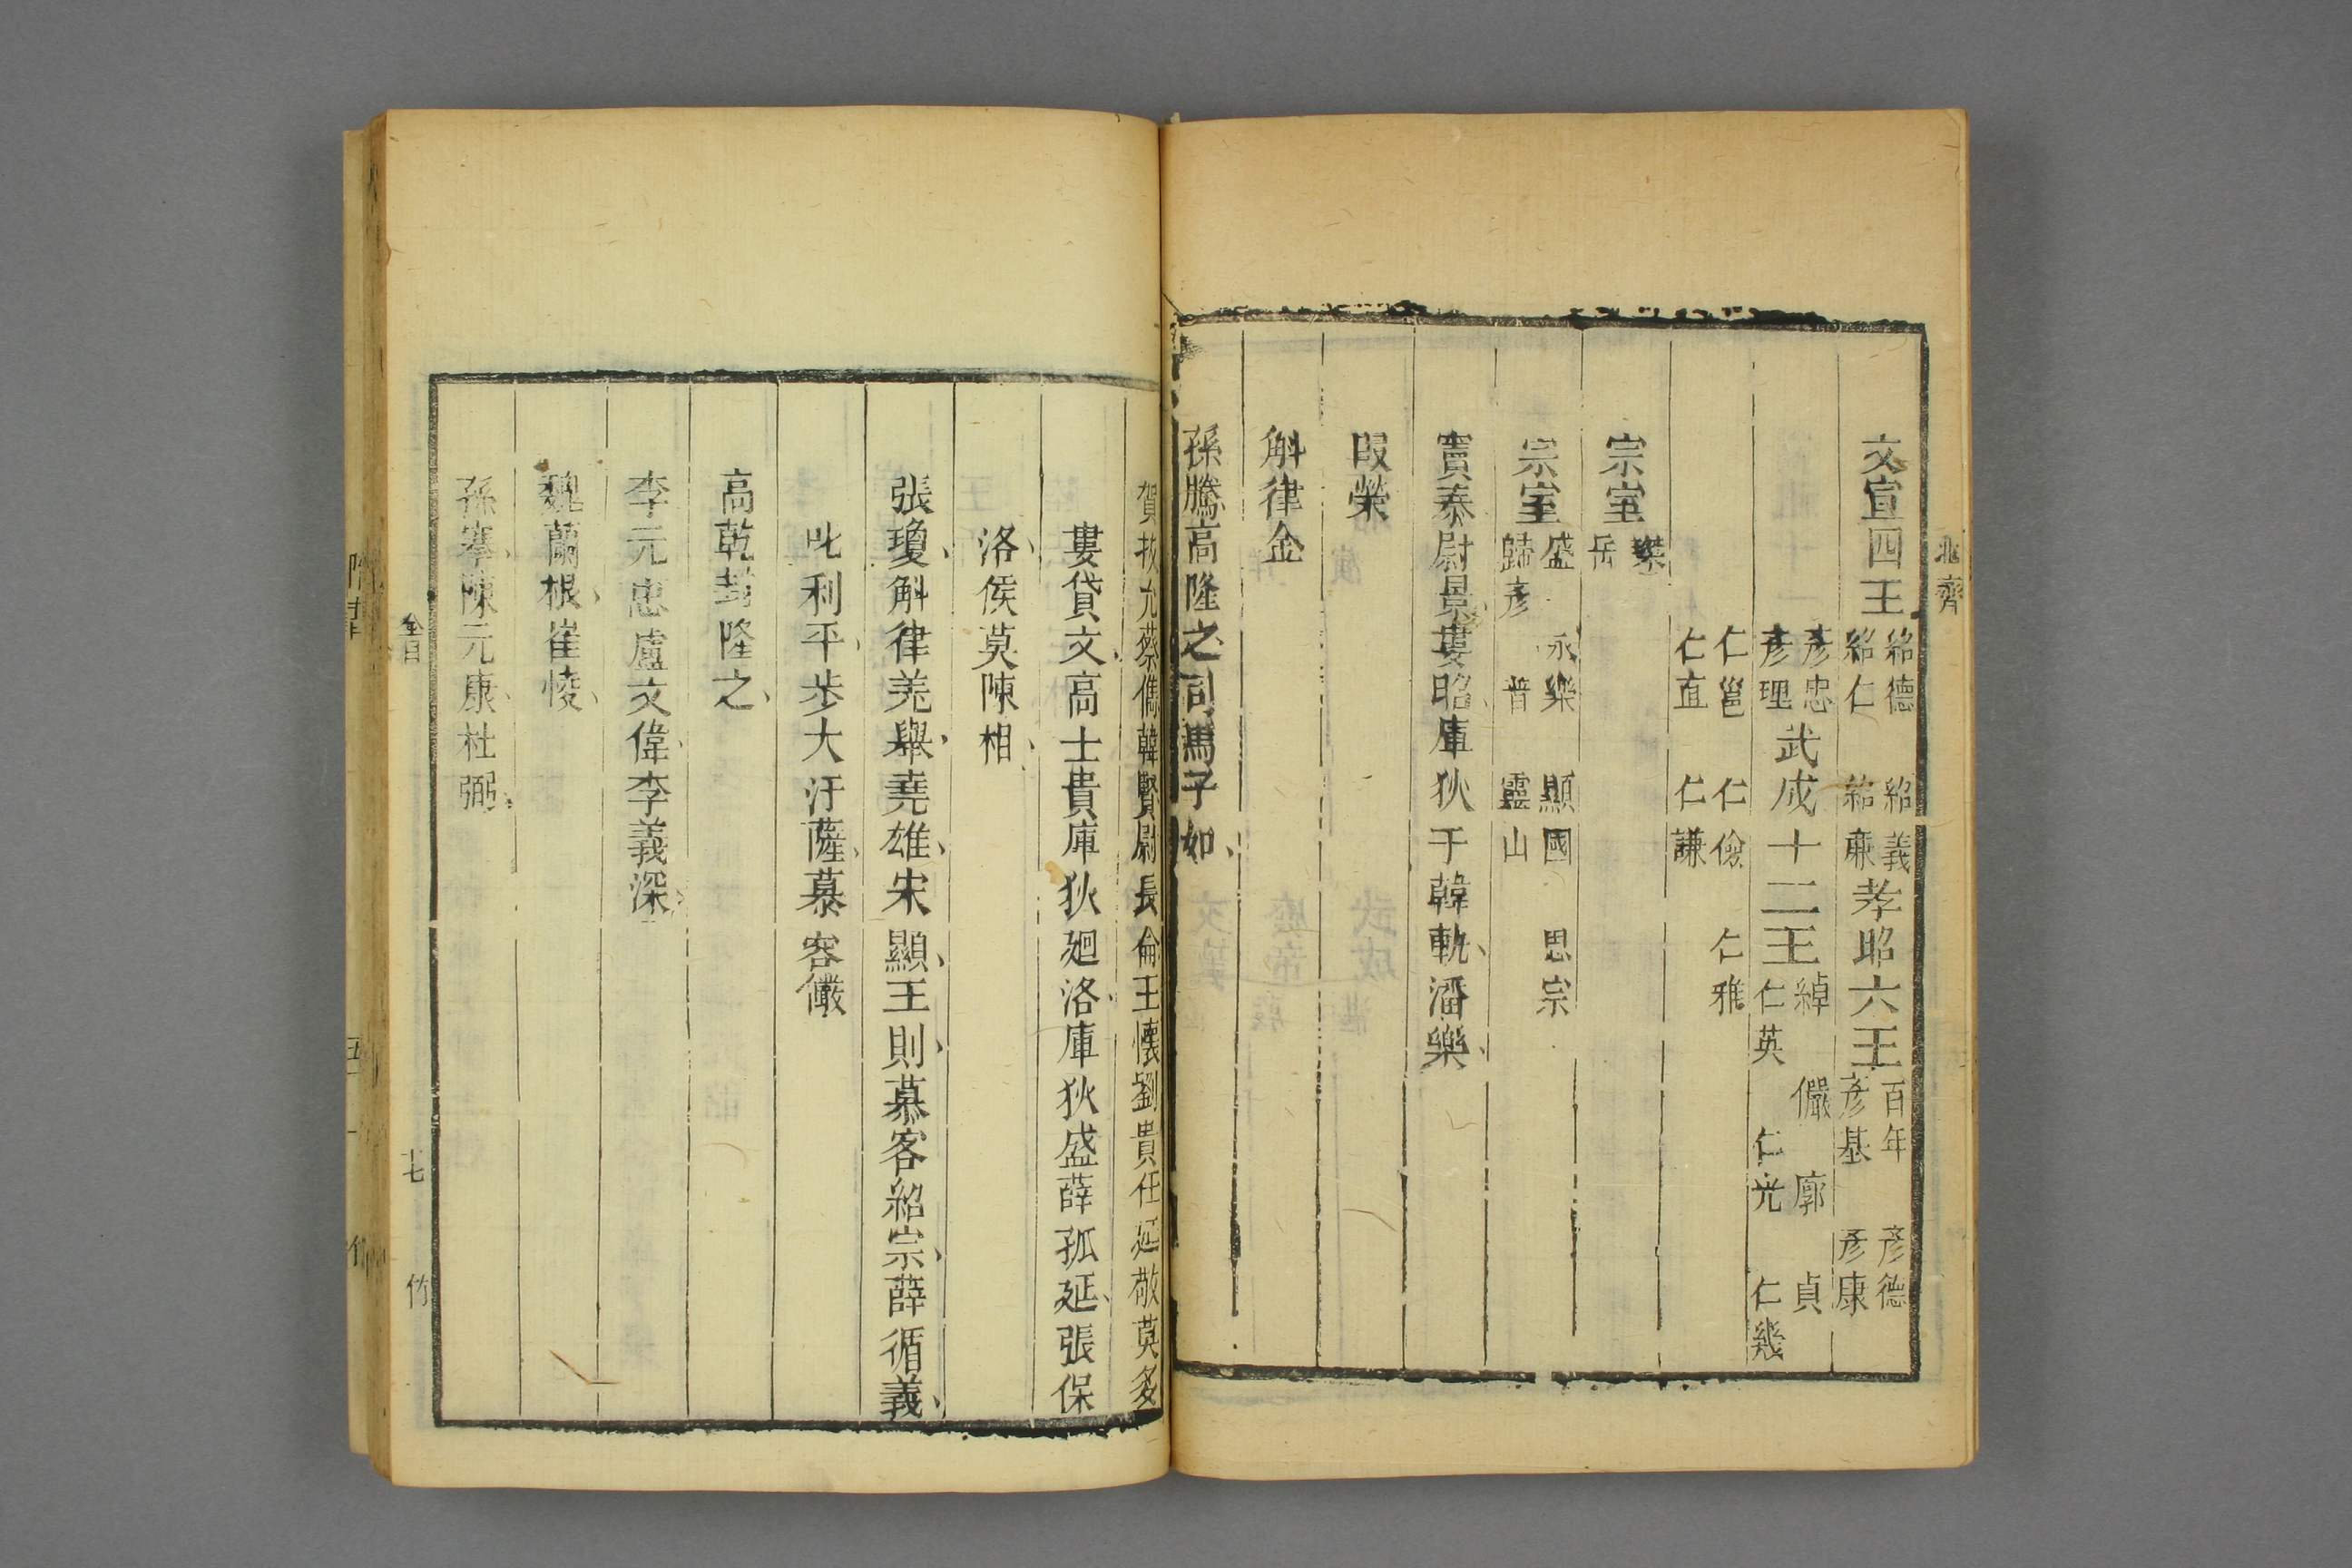 北齊
文宣四王紹德紹義孝昭六王百年彥德
紹仁紹廉彥基彥康
彥忠武成十二王綽儼廓貞
彥理仁英仁光仁幾
仁邕仁儉仁雅
仁直仁謙
宗室琛
岳
宗室盛永樂顯國思宗
歸彥普靈山
竇泰尉景婁昭厙狄干韓軌潘樂
段榮
斛律金
孫騰高隆之司馬子如
賀拔允蔡儁韓賢尉長命王懷劉貴任延敬莫多
婁貸文高士貴庫狄廻洛庫狄盛薛孤延張保
洛侯莫陳相
張瓊斛律羌舉堯雄宋顯王則慕容紹宗薛循義
叱利平步大汗薩慕容儼
高乾封隆之
李元忠盧文偉李義深
魏蘭根崔㥄
孫搴陳元康杜弼
全目
七
竹